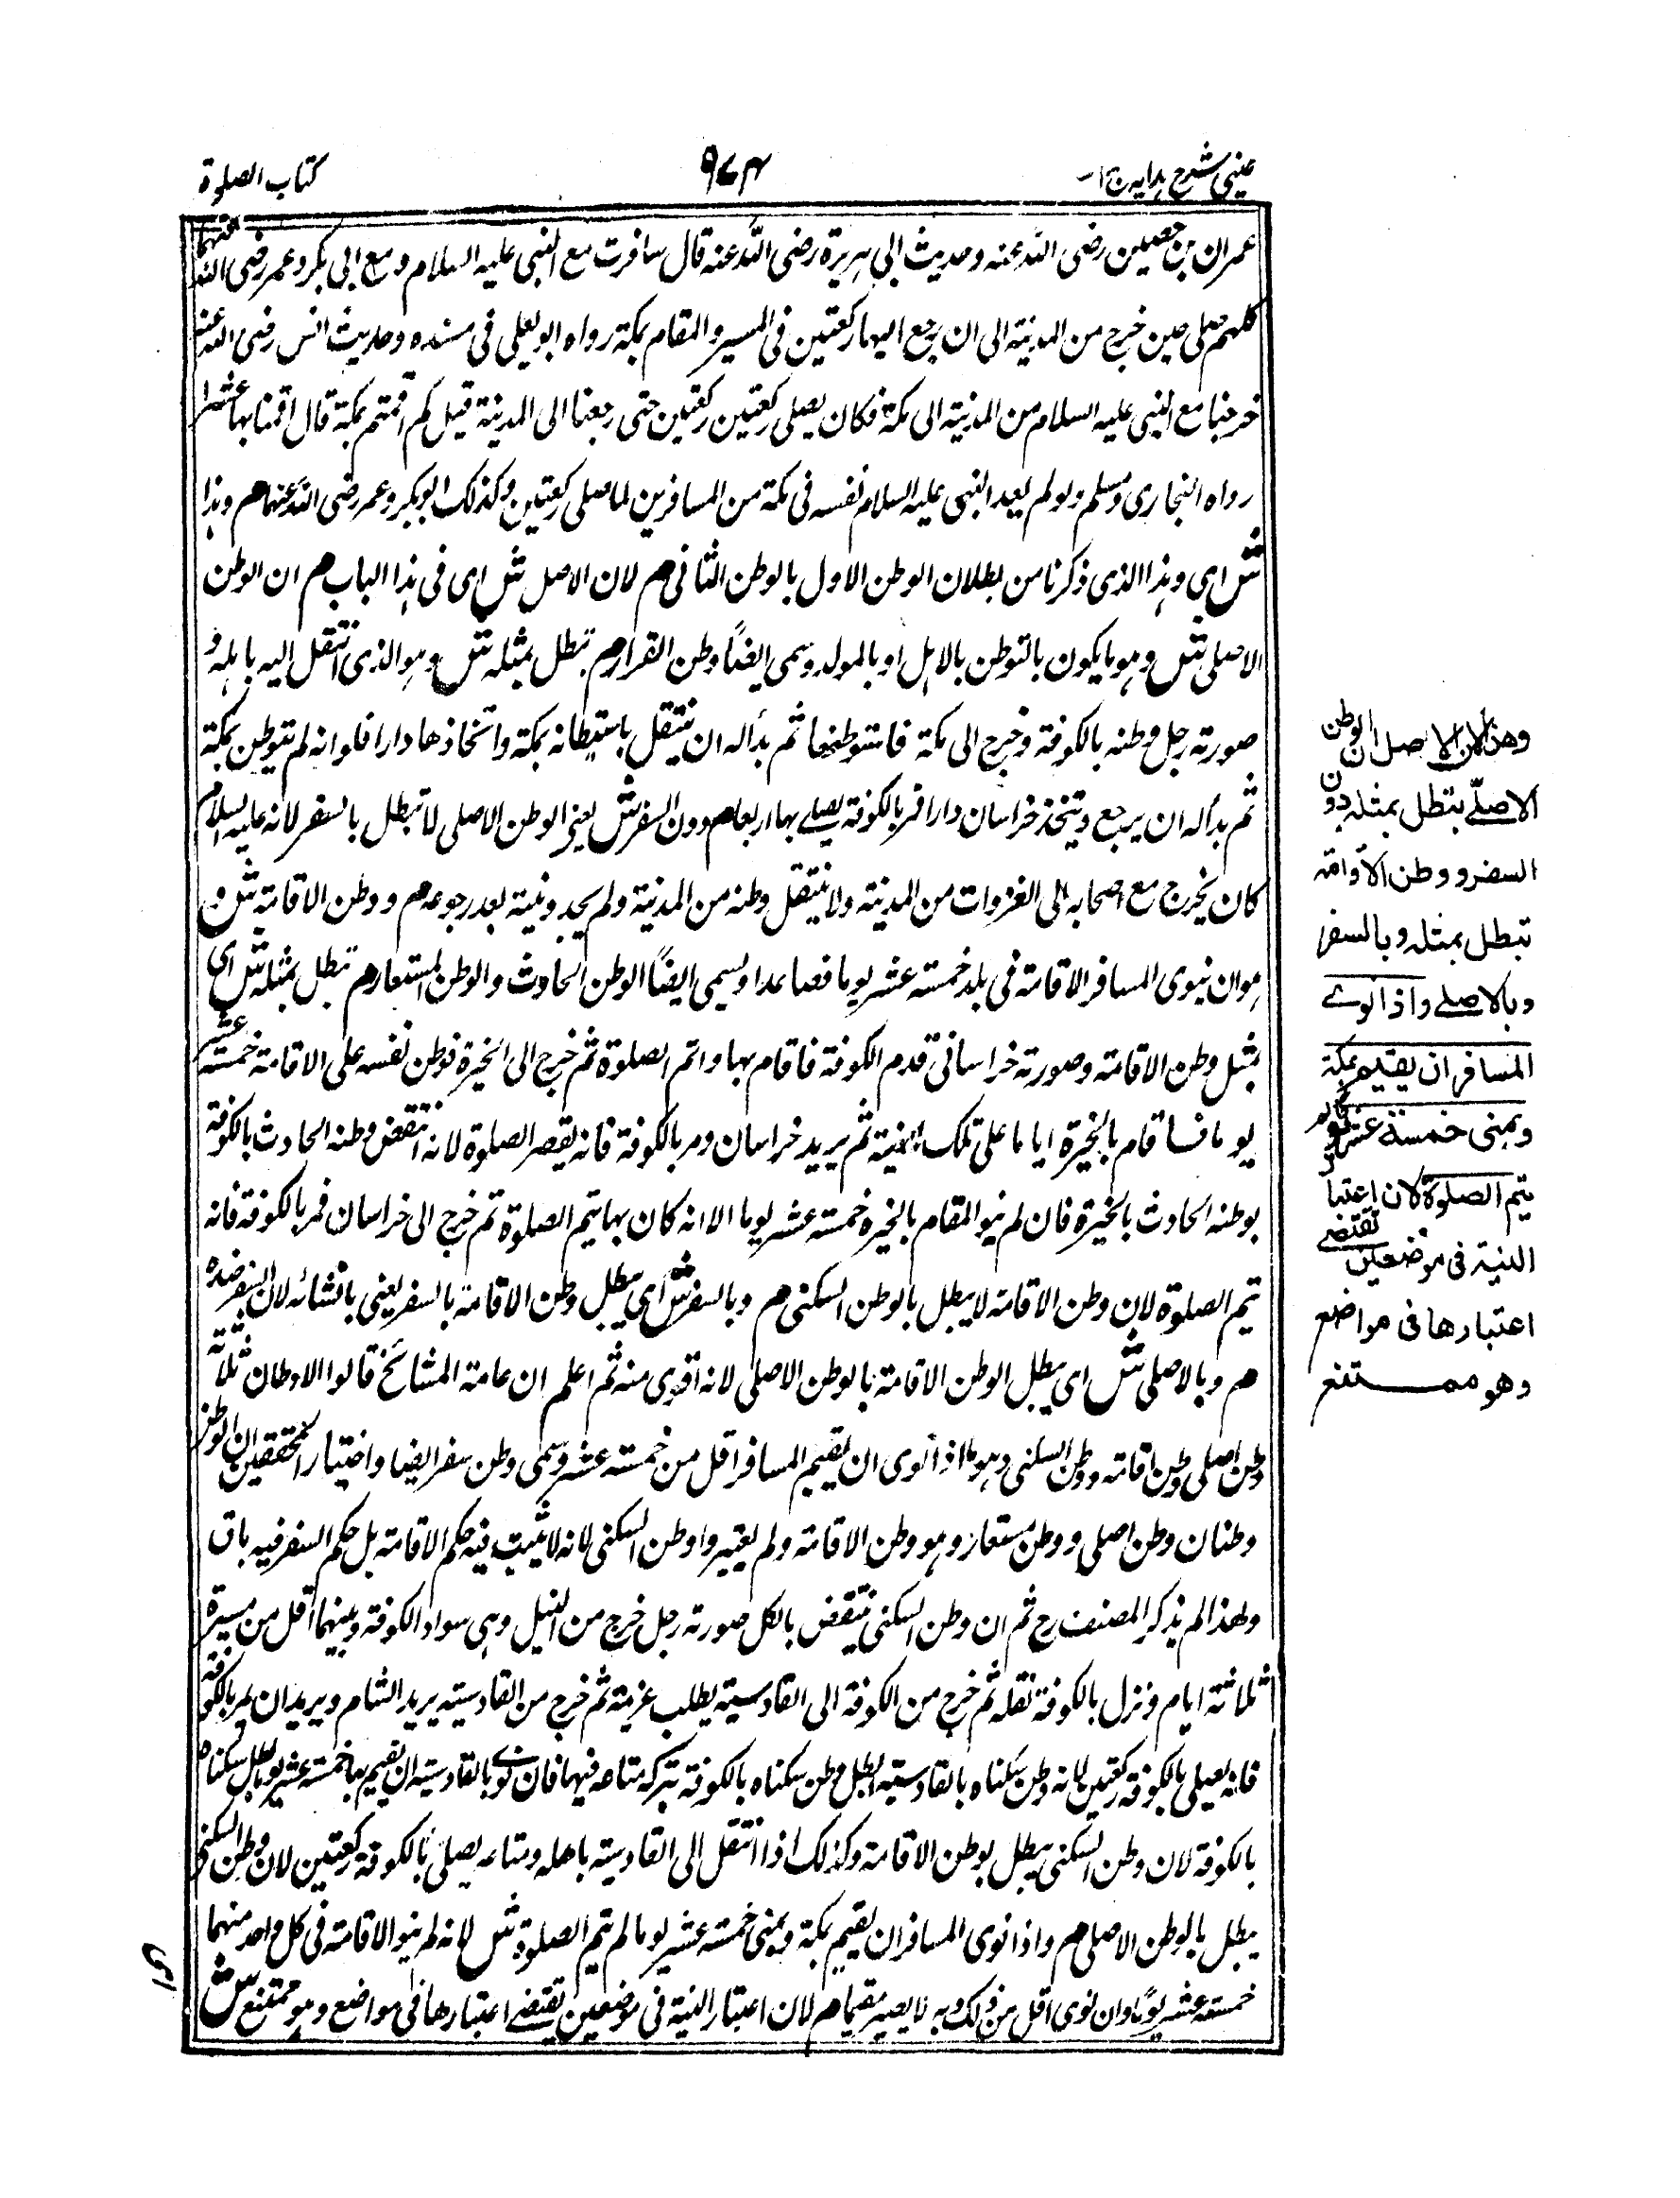 عینی شرح ہدایہ ج ۱
۹۷۴
کتاب الصلوة
عمران بن حصین رضی اللہ عنہ وحدیث ابی ہریرة رضی اللہ عنہ قال سافرت مع النبی علیہ السلام ومع ابی بکر وعمر رضی اللہ عنہما
کلہم صلی حین خرج من المدینة الی ان یرجع الیہا رکعتین فی المسیر والمقام بمکة رواہ ابو یعلی فی مسندہ وحدیث انس رضی اللہ عنہ
خرجنا مع النبی علیہ السلام من المدینة الی مکة فکان یصلی رکعتین رکعتین حتی رجعنا الی المدینة قیل کم اقمتم بمکة قال اقمنا بہا عشرا
رواہ البخاری ومسلم ولو لم یعد النبی علیہ السلام نفسہ فی مکة من المسافرین لما صلی رکعتین وکذلک ابو بکر وعمر رضی اللہ عنہما م وہذا
ش ای وہذا الذی ذکرنا من بطلان الوطن الاول بالوطن الثانی م لان الاصل ش ای فی ہذا الباب م ان الوطن
الاصلی ش وہو ما یکون بالتوطن بالاہل او بالمولد وسمی ایضًا وطن القرار م تبطل بمثلہ ش وہو الذی انتقل الیہ باہلہ و
صورتہ رجل وطنہ بالکوفة وخرج الی مکة فاستوطنها ثم بدأ لہ ان ینتقل باستیطانہ بمکة واتخاذها دارا فلو انہ لم یتوطن بمکة
ثم بدأ لہ ان یرجع ویتخذ خراسان دارا فمر بالکوفة یصلے بہا اربعا م دون السفر ش یعنی الوطن الاصلی لا تبطل بالسفر لانہ علیہ السلام
کان یخرج مع اصحابہ الی الغزوات من المدینة ولا ینتقل وطنہ من المدینة ولم یجدد نیتہ بعد رجوعہ م ووطن الاقامة ش و
ہو ان ینوی المسافر الاقامة فی بلد خمسة عشر یوما فصاعدا ویسمی ایضًا الوطن الحادث والوطن المستعار م تبطل بمثلہ ش ای
بمثل وطن الاقامة وصورتہ خراسانی قدم الکوفة فاقام بہا واتم الصلوة ثم خرج الی الحیرة فوطن نفسہ علی الاقامة خمسة عشر
یوما فاقام بالحیرة ایاما علی تلک النیة ثم یرید خراسان ومر بالکوفة فانہ یقصر الصلوة لانہ انتقض وطنہ الحادث بالکوفة
بوطنہ الحادث بالحیرة فان لم ینو المقام بالحیرہ خمسة عشر یوما الا انہ کان بہا یتم الصلوة ثم خرج الی خراسان فمر بالکوفة فانہ
یتم الصلوة لان وطن الاقامة لا یبطل بالوطن السکنی م وبالسفر ش ای یبطل وطن الاقامة بالسفر یعنی بانشائہ لان السفر ضدہ
م وبالاصلی ش ای یبطل الوطن الاقامة بالوطن الاصلی لانہ اقوی منہ ثم اعلم ان عامة المشائخ قالوا الاوطان ثلاثة
وطن اصلی ووطن اقامة ووطن السکنی وہو ما اذا نوی ان یقیم المسافر اقل من خمسة عشر وسمی وطن سفر ایضا واختیار المحققین ان الوطن
وطنان وطن اصلی ووطن مستعار وہو وطن الاقامة ولم یعتبروا وطن السکنی لانہ لا یثبت فیہ حکم الاقامة بل حکم السفر فیہ باق
ولهذا لم یذکر المصنف رح ثم ان وطن السکنی ینتقض بالکل صورتہ رجل خرج من النیل وہی سواد الکوفة وبینہما اقل من مسیرة
ثلاثة ایام ونزل بالکوفة نقلہ ثم خرج من الکوفة الی القادسیة یطلب غریمہ ثم خرج من القادسیة یرید الشام ویرید ان یمر بالکوفة
فانہ یصلی بالکوفة رکعتین لانہ وطن سکناہ بالقادسیة ابطل وطن سکناہ بالکوفة بترکہ متاعہ فیہا فان نوی بالقادسیة ان یقیم بہا خمسة عشر یوما بطل سکناہ
بالکوفة لان وطن السکنی یبطل بوطن الاقامة وکذلک اذا انتقل الی القادسیة باهلہ ومتاعہ یصلی بالکوفة رکعتین لان وطن السکنی
یبطل بالوطن الاصلی م واذا نوی المسافر ان یقیم بمکة وبمنی خمسة عشر یوما لم یتم الصلوة ش لانہ لم ینو الاقامة فی کل واحد منہما
خمسة عشر یومًا وان نوی اقل من ذلک وبہ لا یصیر مقیما م لان اعتبار النیة فی موضعین یقتضے اعتبارها فی مواضع وہو ممتنع ش
وهذا لان الاصل ان الوطن
الاصلّے یتطل بمثلہ دون
السفر ووطن الاقامۃ
تبطل بمثلہ وبالسفر
وبالاصلے واذا نوے
المسافر ان یقیم بمکۃ
وبمنی خمسۃ عشر یوما لم
یتم الصلوۃ لان اعتبار
النیۃ فی موضعین یقتضے
اعتبارها فی مواضع
وهو ممتنع